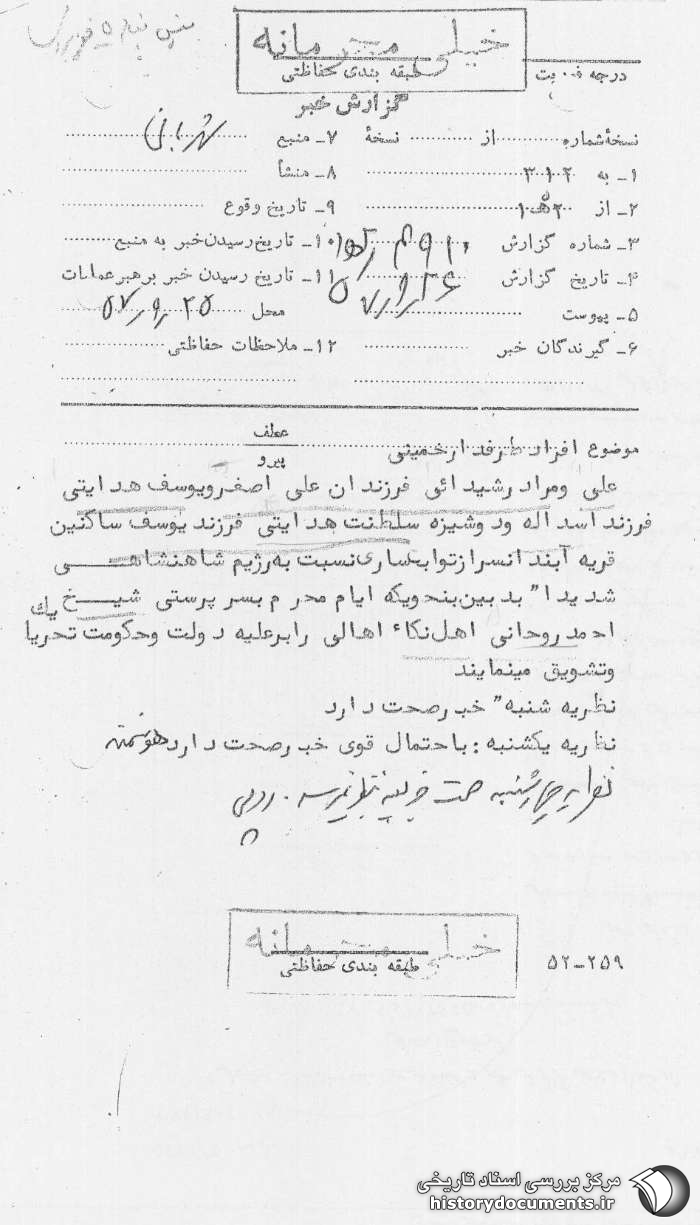 خیلی محرمانه
طبقه بندی حفاظتی
درجه فوریت
گزارش خبر
نسخهٔ شماره از نسخهٔ
۷ـ منبع شهربانی
۱ـ به ۳۱۲
۸ـ منشأ
۲ـ از ۲ ﻫ ۱
۹ـ تاریخ وقوع
۳ـ شماره گزارش
۱۰ـ تاریخ رسیدن خبر به منبع
۴ـ تاریخ گزارش ۵۷/۹/۲۶
۱۱ـ تاریخ رسیدن خبر برهبر عملیات
۵ـ پیوست
محل ۵۷/۹/۲۵
۶ـ گیرندگان خبر
۱۲ـ ملاحظات حفاظتی
موضوع افراد طرفدار خمینی
عطف
پیرو
علی ومراد رشیدائی فرزندان علی اصغرویوسف هدایتی
فرزند اسداله ودوشیزه سلطنت هدایتی فرزند یوسف ساکنین
قریه آبندانسراز توابع ساری نسبت به رژیم شاهنشاهی
شدیدا" بدبین بنحویکه ایام محرم بسرپرستی شیخ یک
احمد روحانی اهل نکاء اهالی را برعلیه دولت وحکومت تحریا
وتشویق مینمایند
نظریه شنبه" خبر صحت دارد
نظریه یکشنبه : باحتمال قوی خبر صحت دارد هوشمند
نظریه چهارشنبه صحت خبر بنظر میرسد.
خیلی محرمانه
طبقه بندی حفاظتی
۵۲ـ۲۵۹
مرکز بررسی اسناد تاریخی
historydocuments.ir